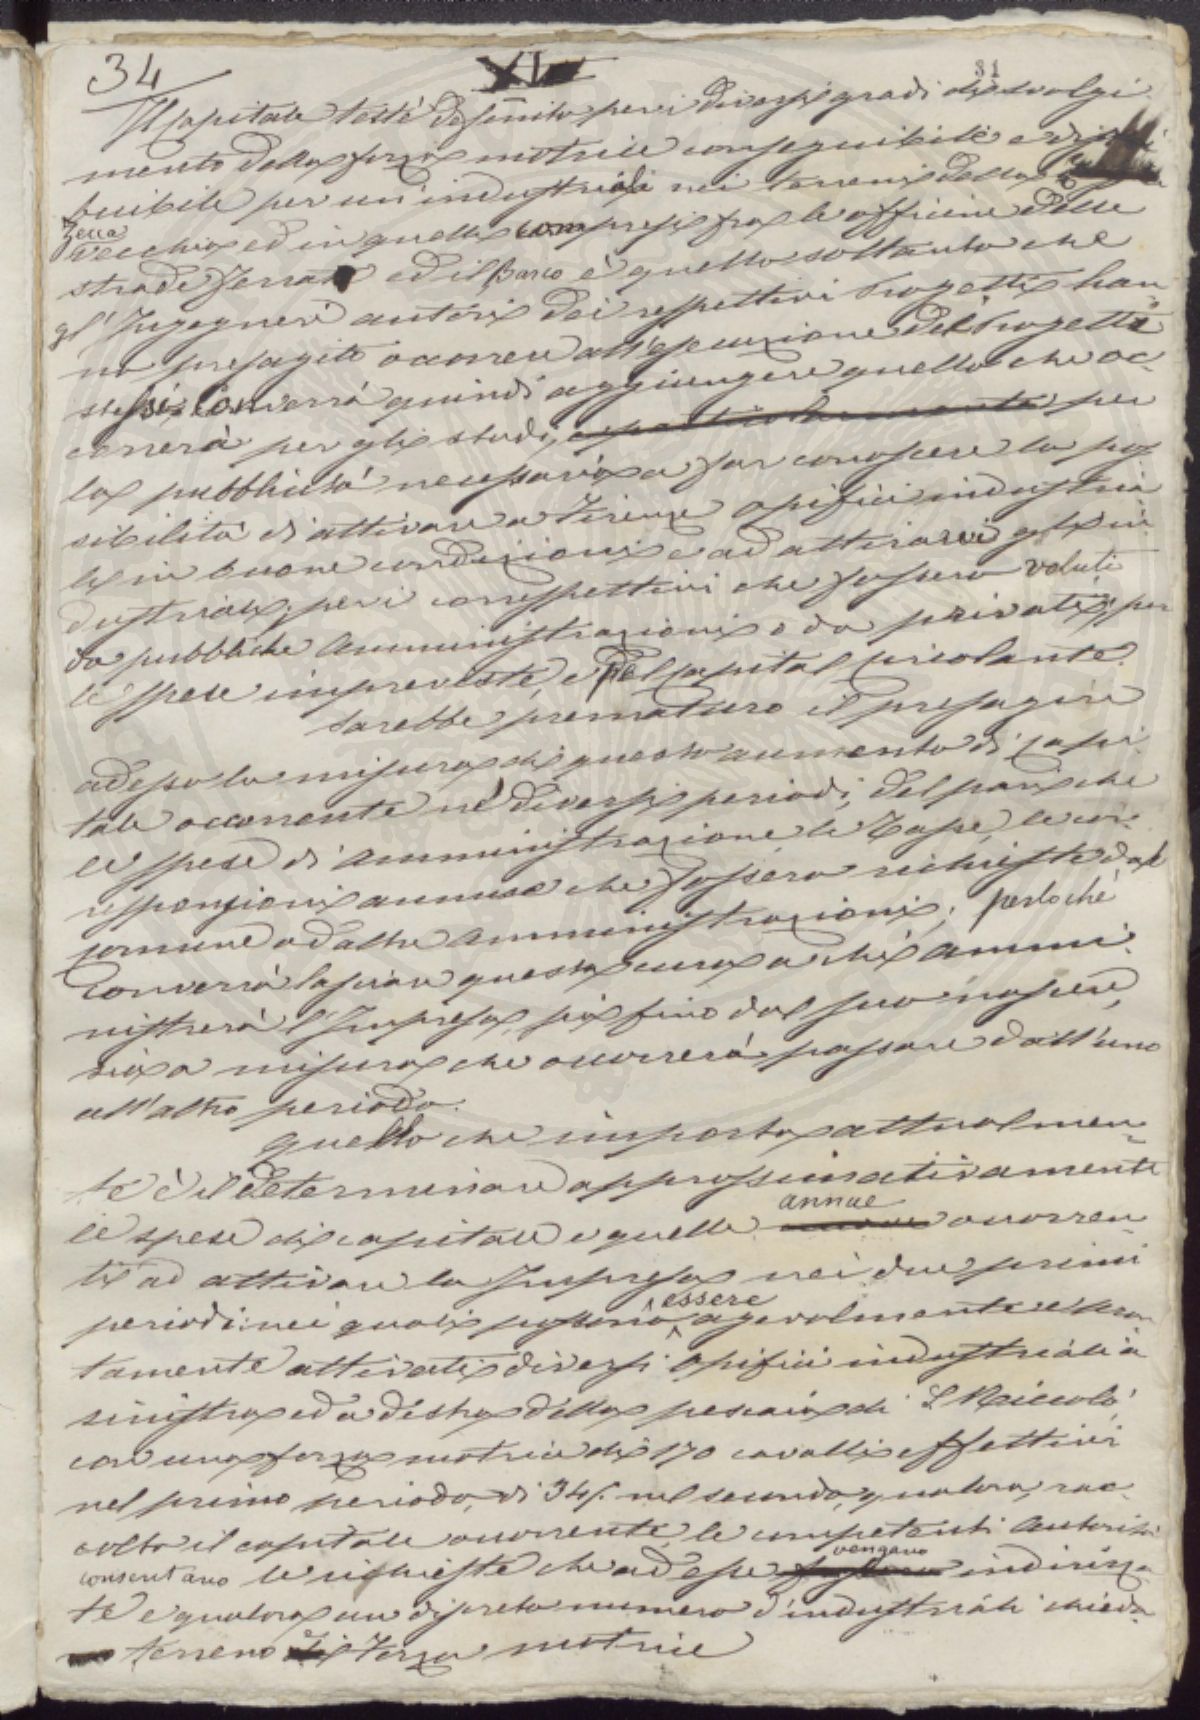 34
31
Il Capitale testè definito per i diversi gradi di svolgi-
mento della forza motrice conseguibile e distri
buibile per un'industriali nei terreni della
Zecca
Vecchia ed in quelli compresi fra le officine delle
strade Ferrate ed il Barco è quello soltanto che
gl'Ingegneri autori dei respettivi Progetti han-
no presagito occorrere all'esecuzione dei Progetti
stessi; converrà quindi aggiungere quello che oc-
correrà per gli studi, per
la pubblicità necessaria a far conoscere la pos
sibilità di attivare a Firenze opifici industria
li in buone condizioni e ad attirarvi gli in-
dustriali; per i correspettivi che fossero voluti
da pubbliche Amministrazioni o da privati; per
le spese impreviste, e pel Capital circolante.
Sarebbe prematuro il presagire
adesso la misura di questo aumento di capi-
tale occorrente nei diversi periodi, del pari che
le spese di amministrazione le Tasse, le cor-
responsioni annue che fossero richieste dal
Comune o da altre Amministrazioni; perlochè
converrà lasciare questa cura a chi ammi-
nistrerà l'Impresa, sia fino dal suo nascere,
sia a misura che occorrerà passare dall'uno
all'altro periodo.
Quello che importa attualmen-
te è il determinare approssimativamente
le spese di capitale e quelle annue occorren-
ti ad attivare la Impresa nei due primi
periodi: nei quali possono essere agevolmente e pron-
tamente attivati diversi opifici industriali a
sinistra ed a destra della pescaia di S. Niccolò,
con una forza motrice di 170 cavalli effettivi
nel primo periodo, di 345. nel secondo, qualora, rac-
colto il capitale occorrente, le competenti Autorità
consentano le richieste che ad esse vengano indirizza
te e qualora un discreto numero d'industriali chieda
terreno e forza motrice